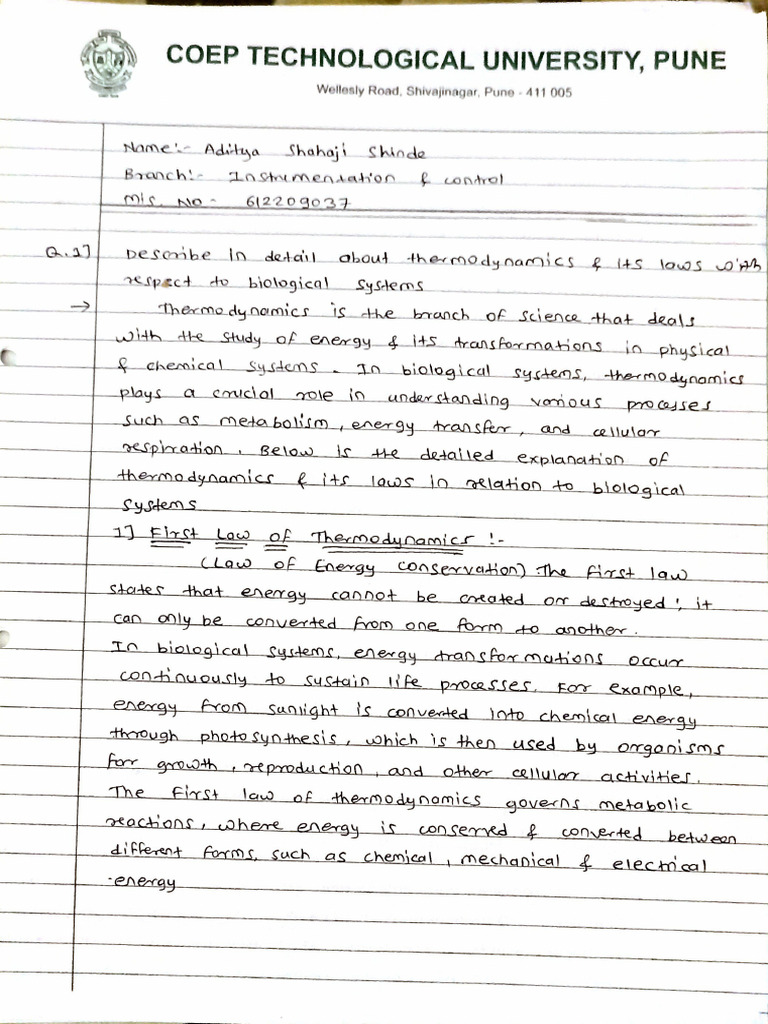 COEP TECHNOLOGICAL UNIVERSITY, PUNE
Wellesly Road, Shivajinagar, Pune - 411 005
Name:- Aditya Shahaji Shinde
Branch:- Instrumentation & control
Mis. No - 612209037
Q.1] Describe in detail about thermodynamics & its laws with
respect to biological systems
→ Thermodynamics is the branch of science that deals
with the study of energy & its transformations in physical
& chemical systems. In biological systems, thermodynamics
plays a crucial role in understanding various processes
such as metabolism, energy transfer, and cellular
respiration. Below is the detailed explanation of
thermodynamics & its laws in relation to biological
systems
1] First Law of Thermodynamics :-
(Law of Energy conservation) The first law
states that energy cannot be created or destroyed; it
can only be converted from one form to another.
In biological systems, energy transformations occur
continuously to sustain life processes. For example,
energy from sunlight is converted into chemical energy
through photosynthesis, which is then used by organisms
for growth, reproduction, and other cellular activities.
The first law of thermodynamics governs metabolic
reactions, where energy is conserved & converted between
different forms, such as chemical, mechanical & electrical
energy